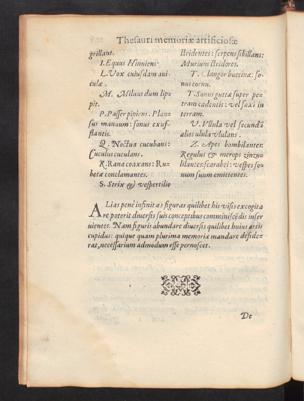 Thesauri memoriæ artificiosæ
grillant.
I. Equus Hinniens.
L. Vox cuiusdam aui
culæ.
M. Miluus dum lipu
pit.
P. Passer pipiens. Plau
sus manuum: sonus exuf
flantis.
Q. Noctua cucubans:
Cuculus cuculans.
R. Rana coaxans: Ru
betæ conclamantes.
S. Strix & vespertilio
stridentes: serpens sibillans:
Murium stridores.
T. clangor buccinæ: so-
nus cornu.
T. Sonus guttæ super pe
tram cadentis: vel saxi in
terram.
V. Vllula vel secundũ
alios ulula vlulans.
Z. Apes bombilantes:
Regulus & merops zinzu
blantes: scarabei: vespes so
num suum emittentes.
ALias penè infinitas figuras quilibet his visis excogita
re poterit diuersis suis conceptibus committuscidis inser
uientes. Nam figuris abundare diuersis quilibet huius artis
cupidus: quique quam plurima memoriæ mandare deside-
rat, necessarium admodum esse pernoscet.
De